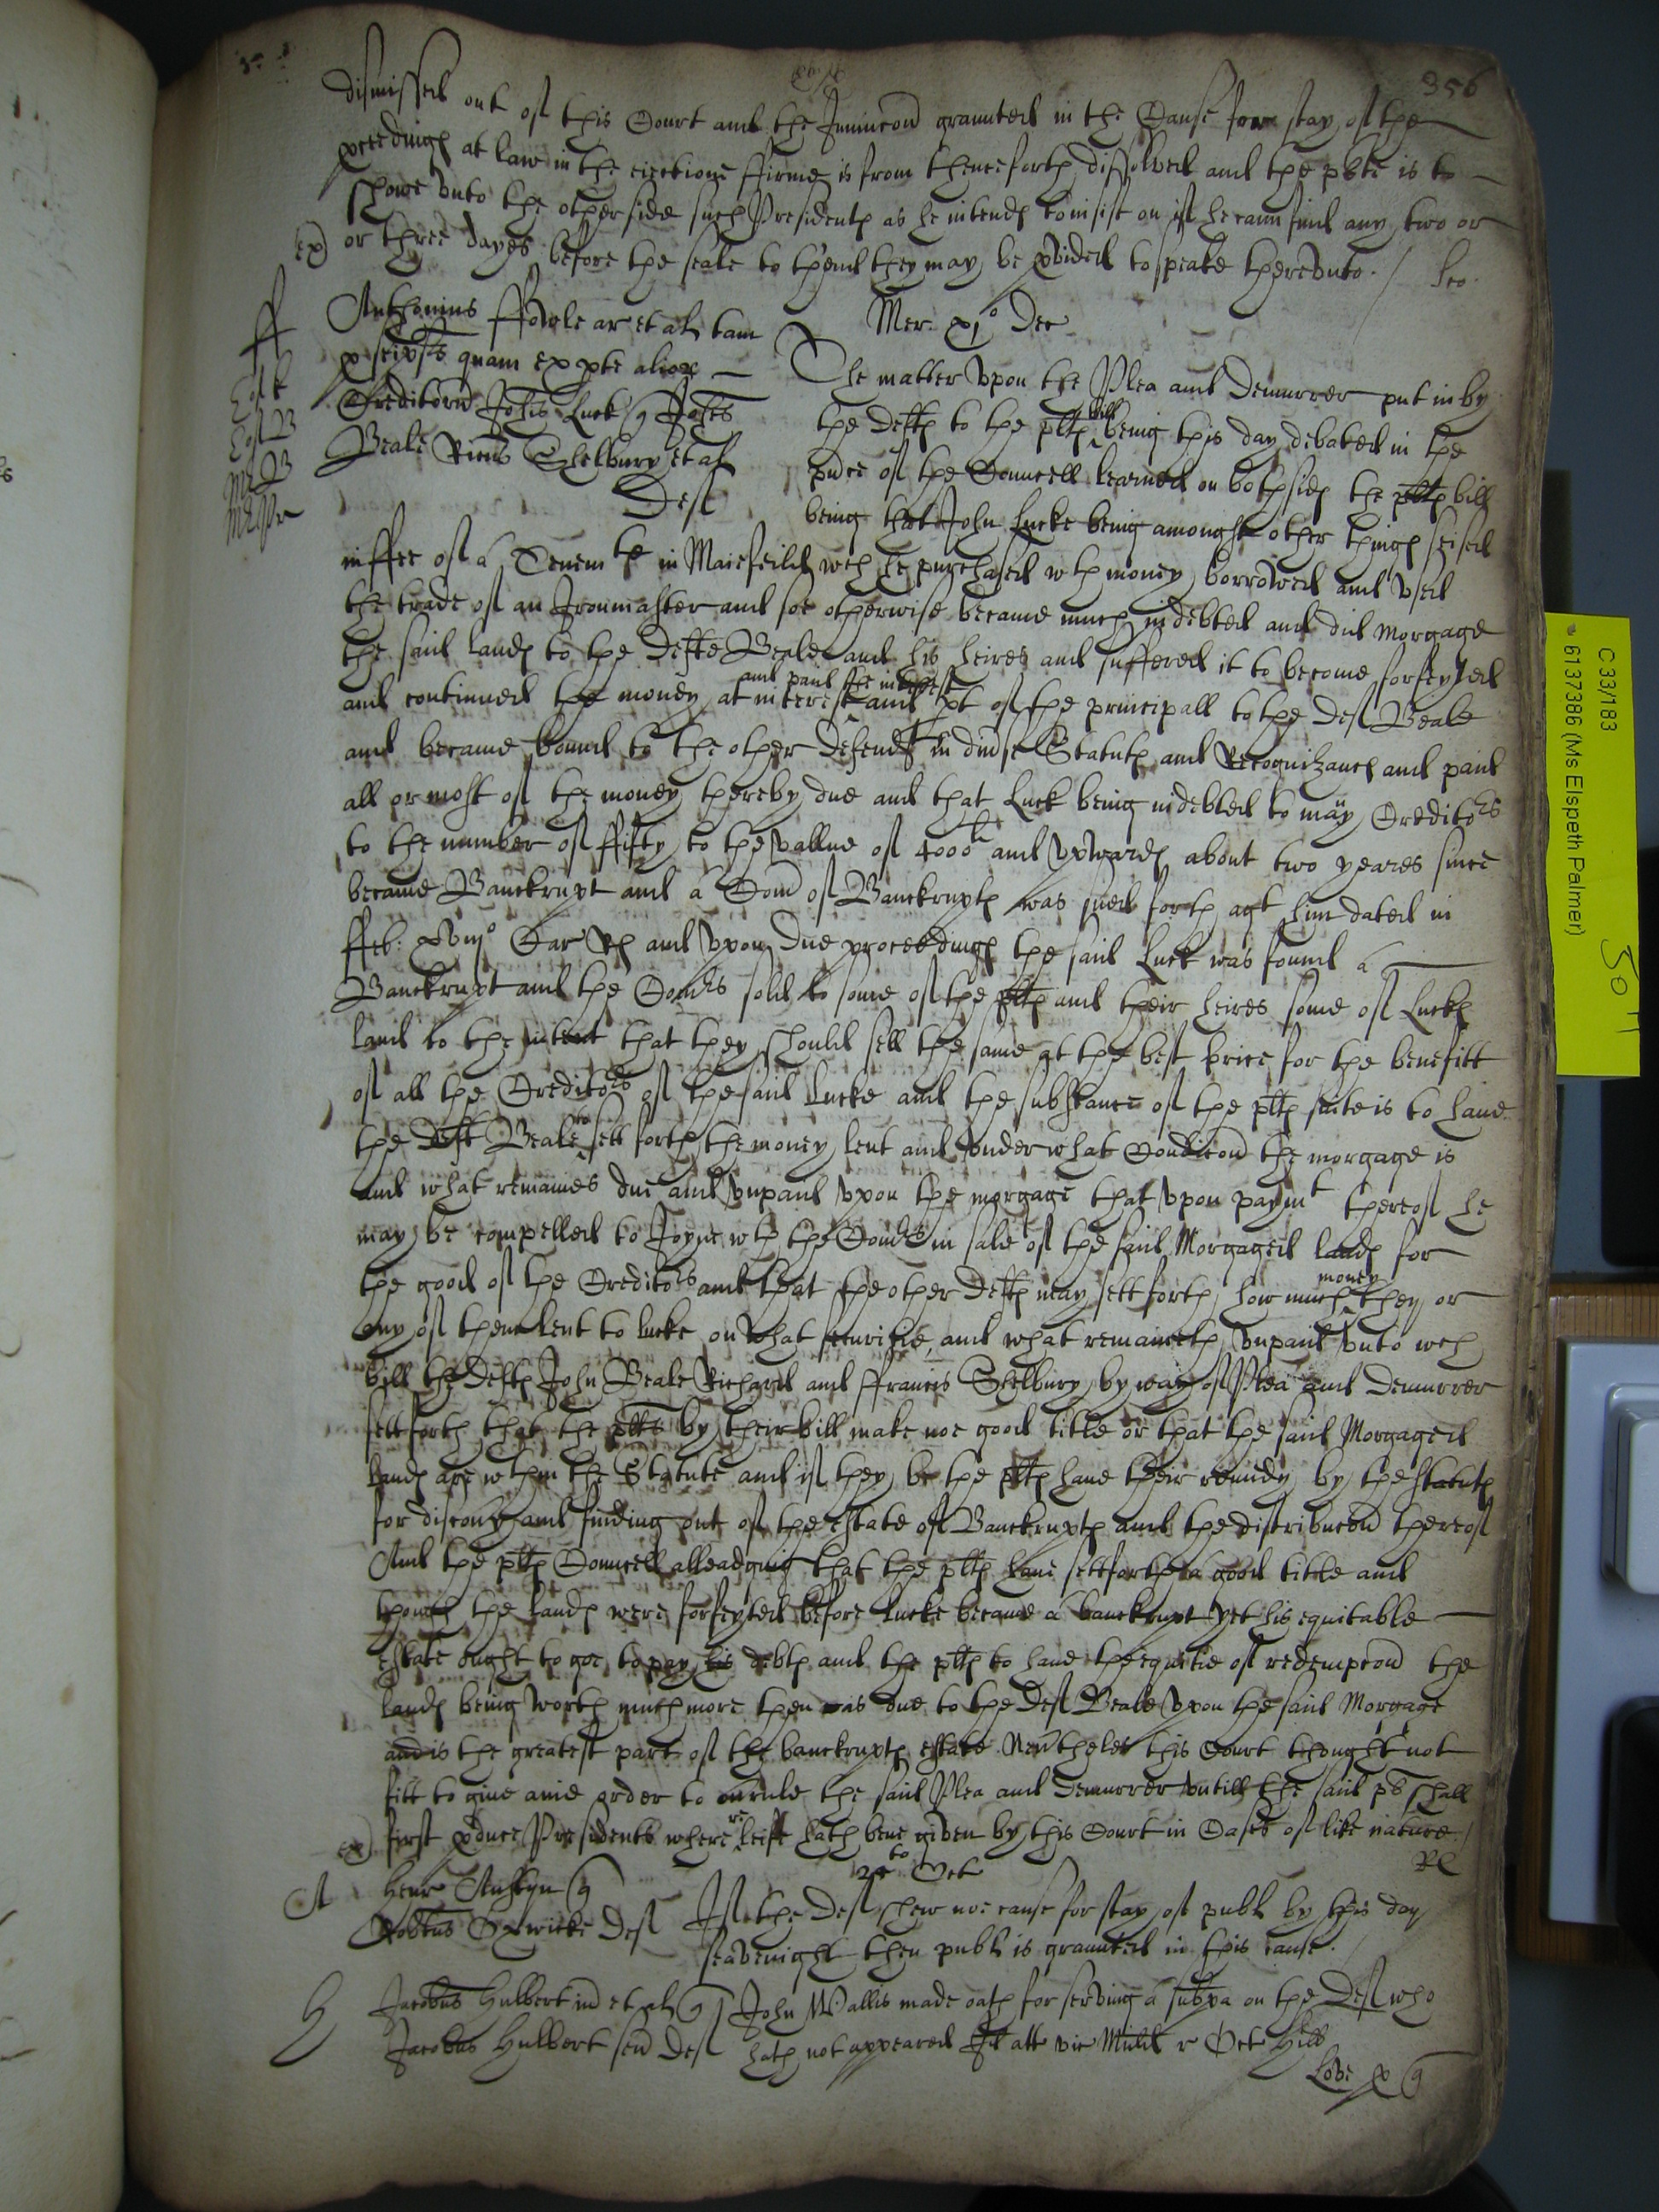 356
dismissed out of this Court and the Iniunccon graunted in the Cause for stay of the
pceedings at law in the eiectione ffirme is from thenceforth dissolved and the plte is to
showe vnto the other side such Presidents as he intends to insist on if he cann find any two or
ex) or three dayes before the seale to thend they may be pvided to speake therevnto. /
ff
Anthonius ffowle ar et al tam
p seipsis quam ex pte alior
Creditoru Johis Luck q Johes
Beale Ricus Shelbury et al
Def
Mer. xjo Dec
The matter vpon the Plea and Demurrer put in by
the defts to the plts bill being this day debated in the
pnce of the Councell learned on both sides the plts bill
being that John Lucke being amongst other things seised
in ffee of a Tenemte in Maiefeild wch he purchased wth money borrowed and vsed
the trade of an Ironmaster and soe otherwise became much indebted and did Morgage
the said lands to the defte Beale and his heires and suffered it to become forfeyted
and continued the money at interest and paid the interest and pt of the principall to the def Beale
and became bound to the other defendts in divse Statuts and Recognizancs and paid
all or most of the money thereby due and that Luck being indebted to many Creditors
to the number of fifty to the vallue of 4000l and vpwards about two yeares since
became Banckrupt and a Com of Banckrupts was sued forth agt him dated in
ffeb. xviijo Car Rs and vpon due proceedings the said Luck was found a
Banckrupt and the Comrs sold to some of the plts and their heires some of Lucks
land to the intent that they should sell the same at the best price for the benefitt
of all the Creditors of the said Lucke and the substance of the plts suite is to have
the deft Beale to sett forth the money lent and vnder what Condicon the morgage is
and what remaines due and vnpaid vpon the morgage that vpon paymt thereof he
may be compelled to Joyne wth the Comrs in sale of the said Morgaged lands for
the good of the Creditors and that the other defts may sett forth how much money they or
any of them lent to Lucke on what securitie, and what remaineth vnpaid vnto wch
bill the defts John Beale Richard and ffrancis Shelbury by way of Plea and Demurrer
sett forth that the plts by their bill make noe good title or that the said Morgaged
lands are wthin the Statute and if they be the plts have their remidy by the statuts
for discouy and finding out of the estate of Banckrupts and the distribucon thereof
And the plts Councell alleadging that the plts have sett forth a good title and
though the lands were forfeyted before Lucke became a banckrupt yet his equitable
estate ought to goe to pay his debts and the plts to have the equitie of redempcon the
lands being worth much more then was due to the def Beale vpon the said Morgage
and is the greatest part of the banckrupts estate Neutheles this Court thought not
fitt to give anie order to ouerule the said Plea and Demurrer vntill the said pls shall
ex) first pduce Presidents where releife hath bene given by this Court in Cases of like nature. /
Rl
A
Henr Austyn q
Robtus Orwicke Def
24to Oct
If the Def shew noe cause for stay of publ by this day
seavenight then publ is graunted in this cause. /
H
Jacobus Hulbert iun et al q
Jacobus Hulbert sen Def
John Wallis made oath for serving a subpa on the Def who
hath not appeared It att vic Midd r Oct Hill
Love p q
C 33/183
6137386 (Ms Elspeth Palmer)